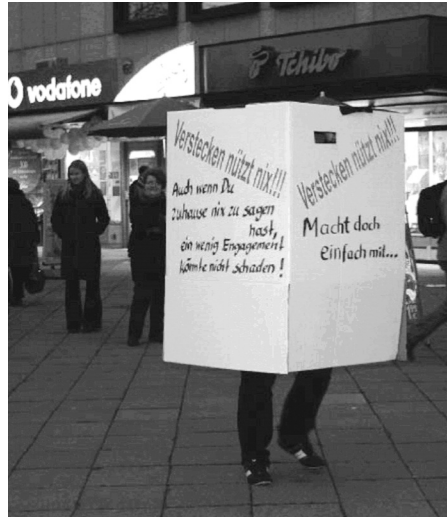 vodafone
Tchibo
Verstecken nützt nix!!!
Auch wenn Du
zuhause nix zu sagen
hast,
ein wenig Engagement
könnte nicht schaden!
Verstecken nützt nix!!!
Macht doch
einfach mit...